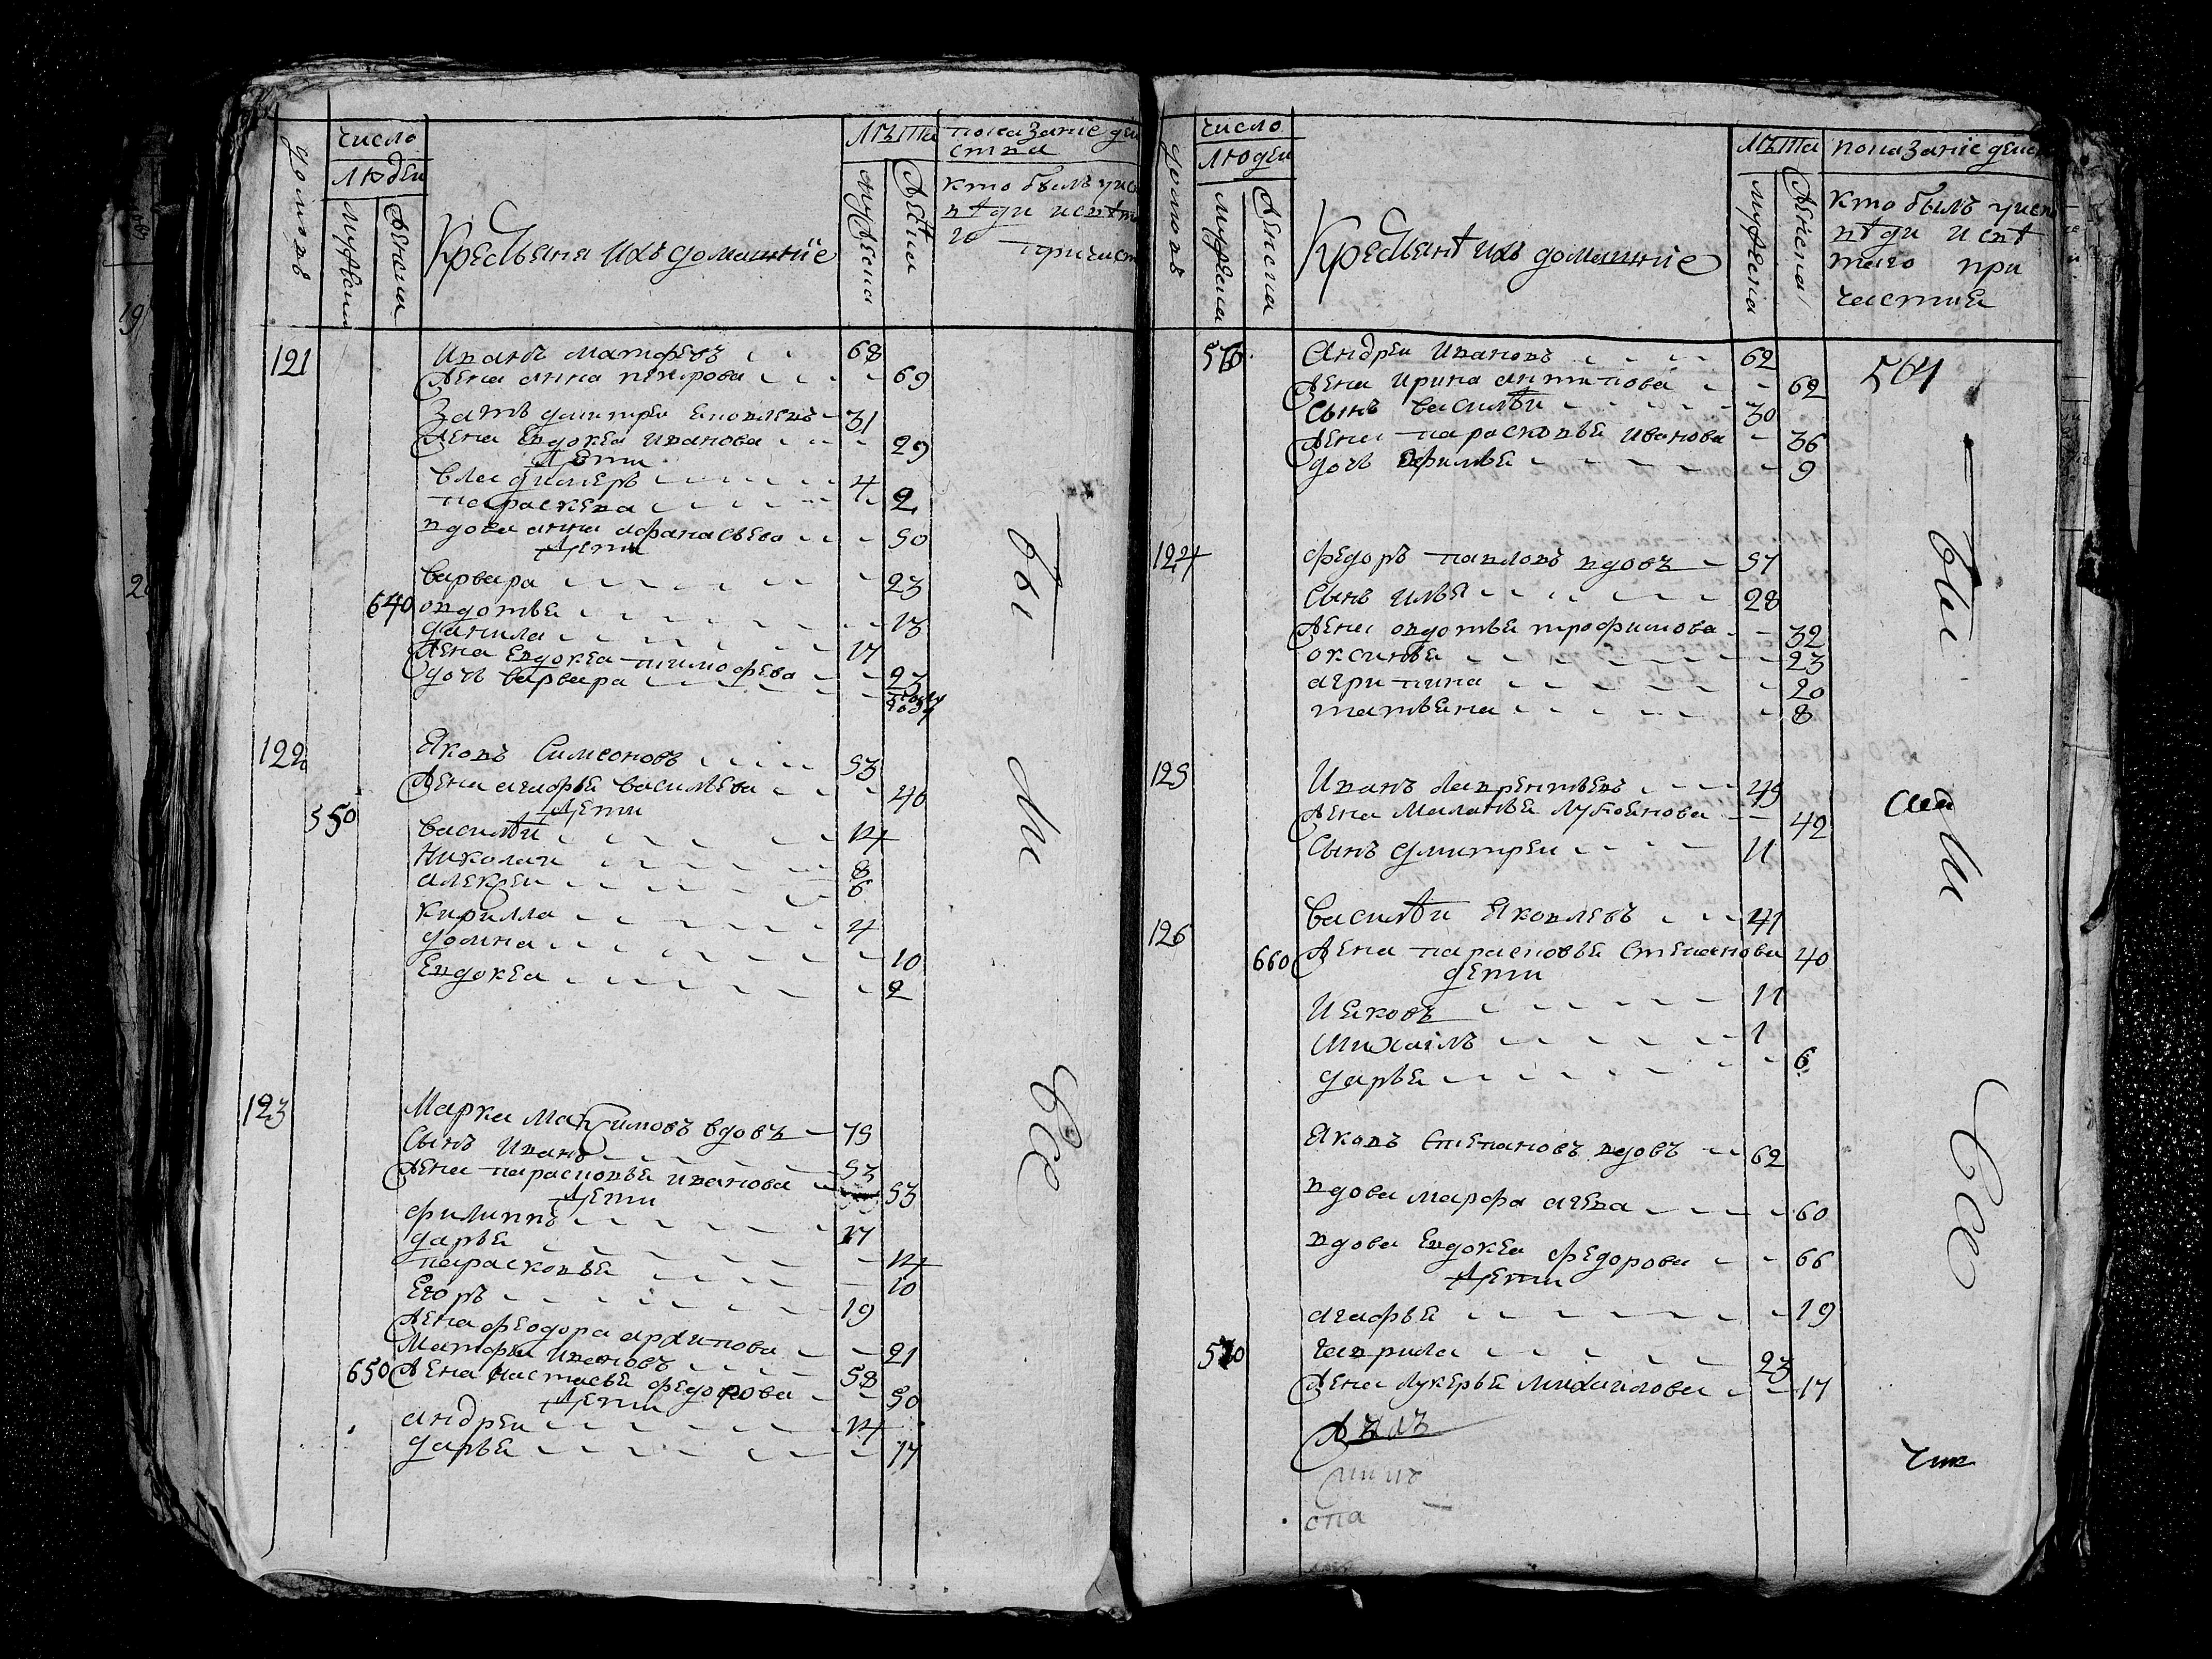 число
людеи
домовъ
мужеска
женска
Крестьяня ихъ домашние
лѣта
мужеска
показание деи
ства
кто былъ у ис
вѣди и свѣт
го причаст
121
Иванъ матфевъ 68
жена анна петрова 69
Зать дмитреи яковлевъ 31
жена Евдокея иванова 29
дети
владимеръ 4
параскева 2
вдова анна афанасьева 50
дети
варвара 23
640 овдотья 13
данила 17
жена Евдокея тимофева 23
дочь варвара полу году
122 Яковъ Симеоновъ 53
жена агафья васильева 40
550
дети
василѣи 14
Николаи 8
алексеи 6
кирилла 4
домна 10
Евдокея 2
123 Марка Максимовъ вдовъ 75
Сынъ Иванъ 53
жена парасковья иванова 53
дети
филиппъ 17
дарья 14
парасковья 10
Егоръ 19
жена феодора архипова 21
Матфеи Ивановъ 58
650 жена настасья федорова 50
дети
андреи 14
дарья 17
бы
ли
все
число
людеи
домовъ
мужеска
женска
Крестьянѣ ихъ домашние
лѣта
мужеска
женска
показание деис
кто былъ у испо
вѣди и свѣ
таго при
частия
560 Андреи Ивановъ 62
жена ирина антипова 62
Сынъ василѣи 30
жена парасковья иванова 36
дочь Офимья 9
564
124 федоръ павловъ вдовъ 57
Сынъ илья 28
жена овдотья трофимова 32
оксинья 23
агрипина 20
татьяна 8
125 Иванъ лаврентьевъ 45
жена Маланья лукоянова 42
Сынъ дмитреи 11
126 василѣи Яковлевъ 41
660 жена парасковья Степанова 40
дети
Ияковъ 11
михаилъ 1
дарья 6
Яковъ Степановъ вдовъ 62
вдова марфа агева 60
вдова Евдокея федорова 66
дети
агафья 19
570 гаврила 23
жена лукерья михаилова 17
бы
ли
все